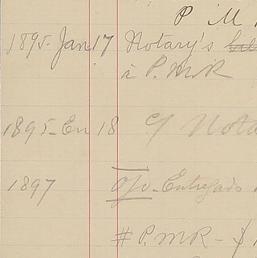 P M
1895. Jan 17 Notary's
à P.M.R
1895 - En 18 c/ Nota
1897 o/v. Entregado
# P.M.R - $